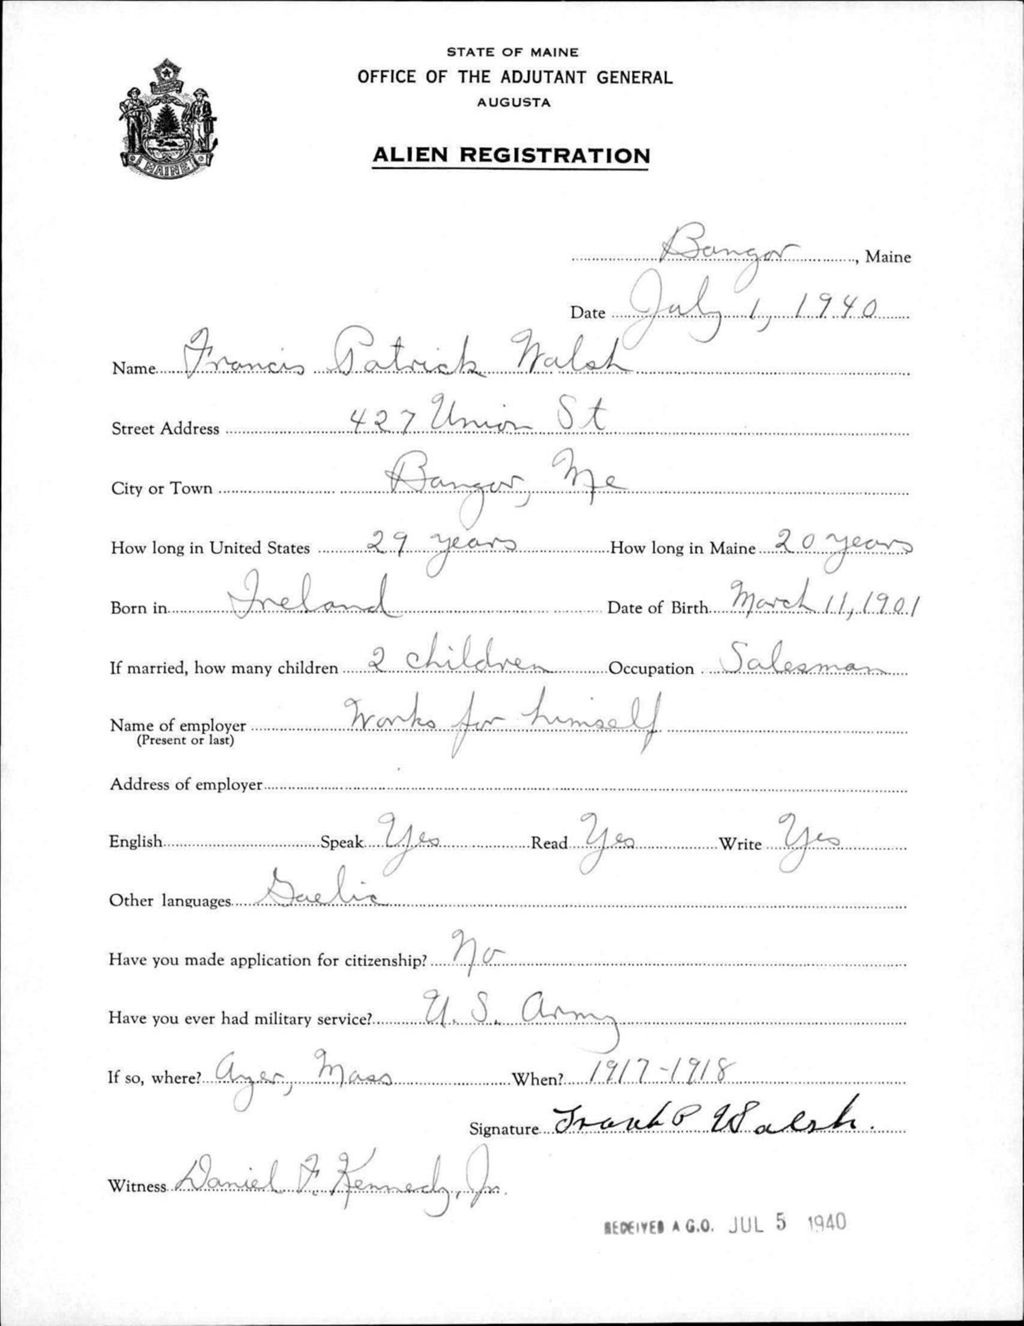 STATE OF MAINE
OFFICE OF THE ADJUTANT GENERAL
AUGUSTA
ALIEN REGISTRATION
MAINE
Bangor, Maine
Date July 1, 1940
Name Francis Patrick Walsh
Street Address 427 Union St
City or Town Bangor, Me
How long in United States 29 years How long in Maine 20 years
Born in Ireland Date of Birth March 11, 1901
If married, how many children 2 children Occupation Salesman
Name of employer Works for himself
(Present or last)
Address of employer
English Speak Yes Read Yes Write Yes
Other languages Gaelic
Have you made application for citizenship? No
Have you ever had military service? U. S. Army
If so, where? Ayer, Mass When? 1917-1918
Signature Frank P Walsh.
Witness Daniel F. Kennedy, Jr.
RECEIVED A.G.O. JUL 5 1940